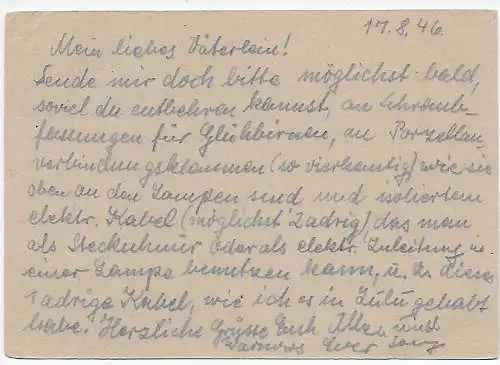 17.8.46.
Mein liebes Väterlein!
Sende mir doch bitte möglichst bald,
soviel du entbehren kannst, an Schraub-
fassungen für Glühbirnen, an Porzellan-
verbindungsklammen (so vierkantig) wie sie
oben an den Lampen sind und isoliertem
elektr. Kabel (möglichst 2adrig) das man
als Steckschnur oder als elektr. Zuleitung in
einer Lampe benutzen kann, u. zw. dieses
2adrige Kabel, wie ich es in Lulu gehabt
habe. Herzliche Grüsse Euch Allen und
Euer